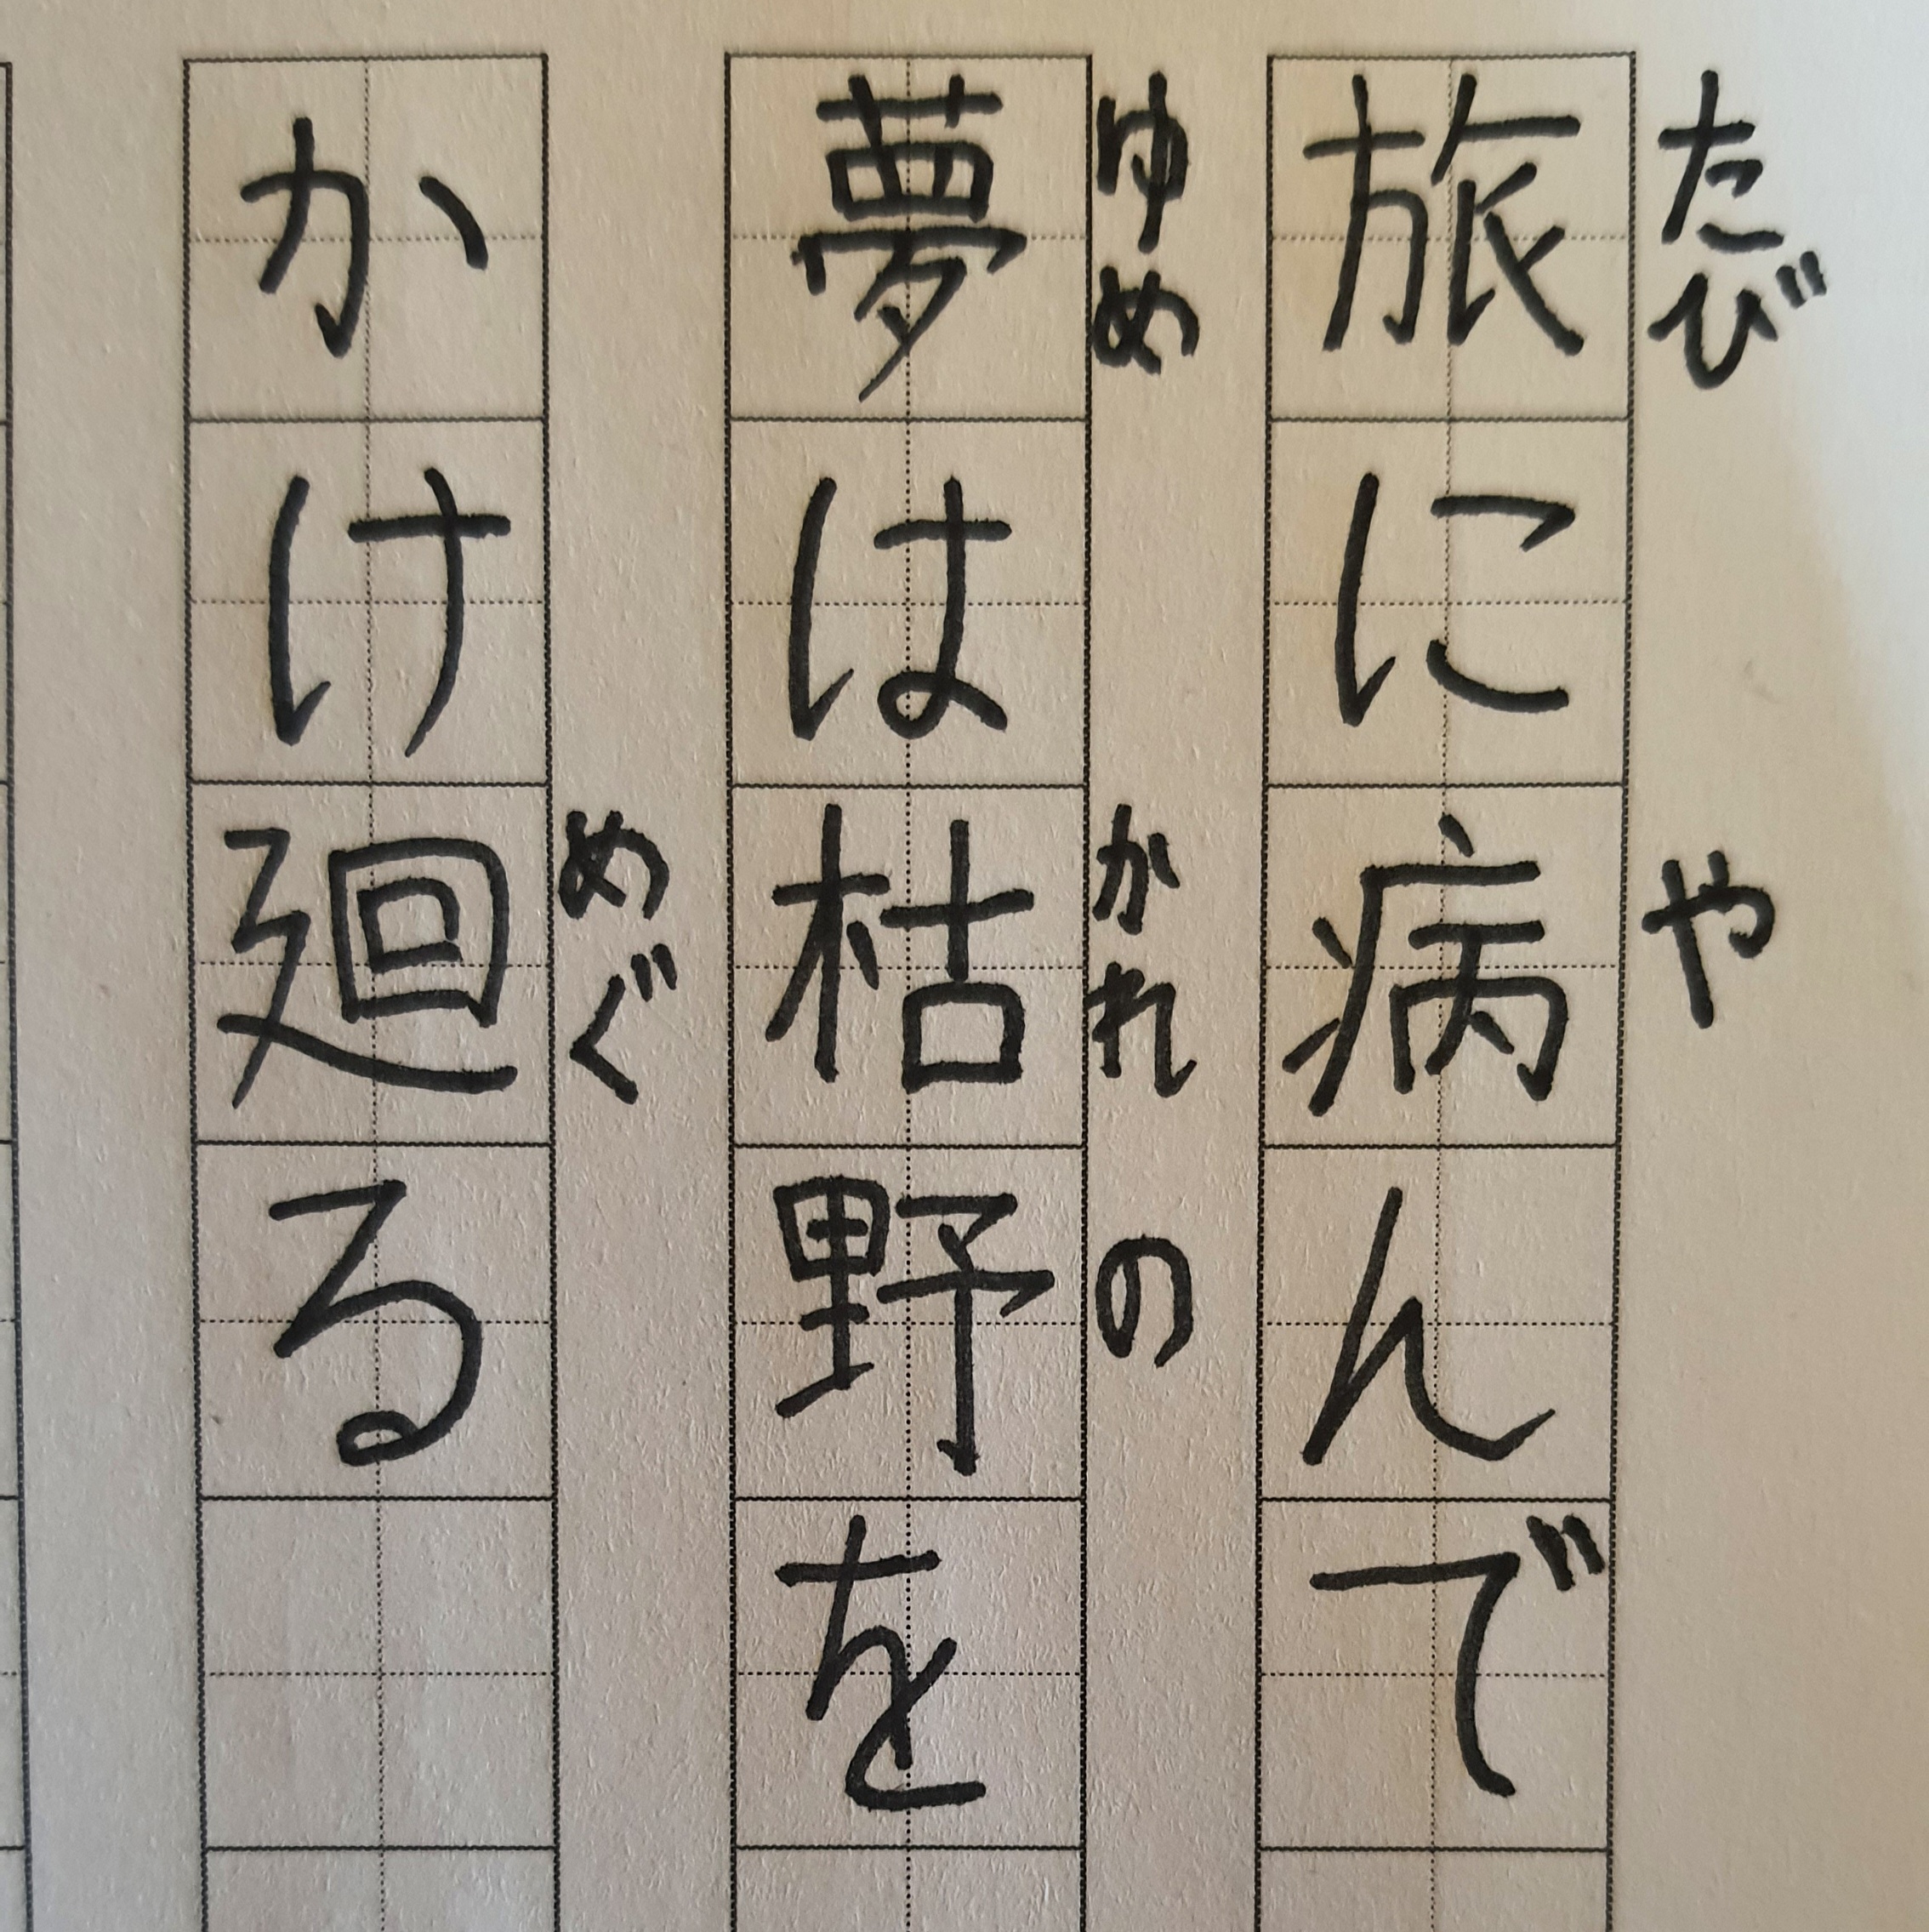 たび
旅に病んで
や
ゆめ
夢は枯野を
かれの
かけ廻る
めぐ